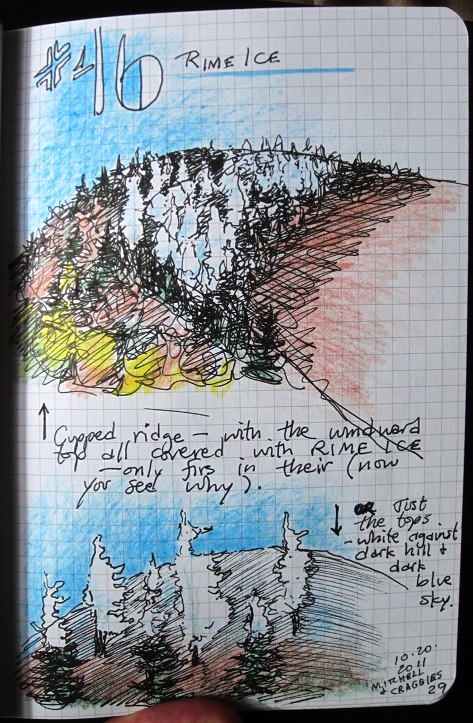 #16 RIME ICE
Cupped ridge – with the windward
top all covered with RIME ICE
– only firs in their (now
you see why).
OR Just
the tops.
– white against
dark hill &
dark
blue
sky.
10.20.
2011
MITCHELL
& CRAGGIES
29